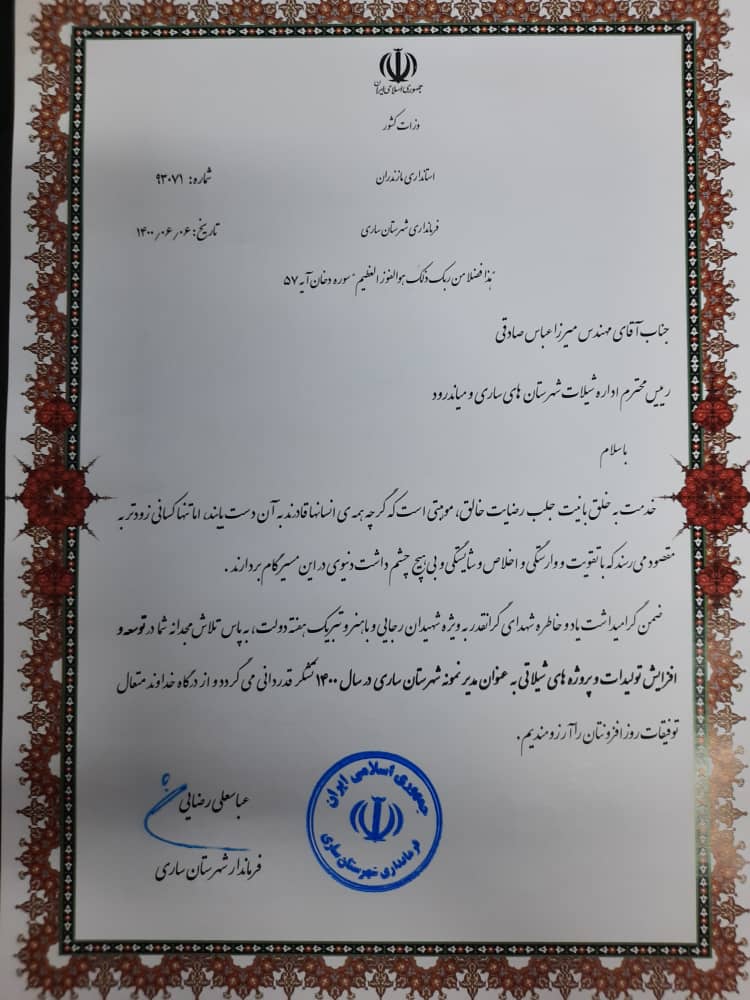 جمهوری اسلامی ایران
وزارت کشور
استانداری مازندران
شماره: ۹۳۰۷۱
فرمانداری شهرستان ساری
تاریخ: ۱۴۰۰٫۰۶٫۰۶
"هذا فضلا من ربک ذلک هوالفوز العظیم" سوره دخان آیه ۵۷
جناب آقای مهندس میرزا عباس صادقی
رییس محترم اداره شیلات شهرستان های ساری و میاندرود
باسلام
خدمت به خلق بانیت جلب رضایت خالق، موهبتی است که گرچه همه ی انسانها قادرند به آن دست یابند، اما تنها کسانی زودتر به
مقصود می رسند که با تقویت و وارستگی و اخلاص و شایستگی و بی هیچ چشم داشت دنیوی در این مسیر گام بردارند.
ضمن گرامیداشت یاد و خاطره شهدای گرانقدر به ویژه شهیدان رجایی و باهنر و تبریک هفته دولت، به پاس تلاش مجدانه شما در توسعه و
افزایش تولیدات و پروژه های شیلاتی به عنوان مدیر نمونه شهرستان ساری در سال ۱۴۰۰ تشکر قدردانی می گردد و از درگاه خداوند متعال
توفیقات روز افزونتان را آرزومندیم.
عباسعلی رضایی
فرماندار شهرستان ساری
جمهوری اسلامی ایران
فرمانداری شهرستان ساری